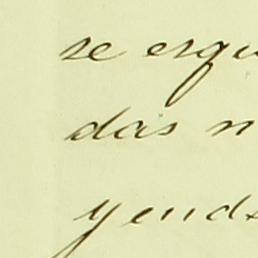 se esqu
das n
yends